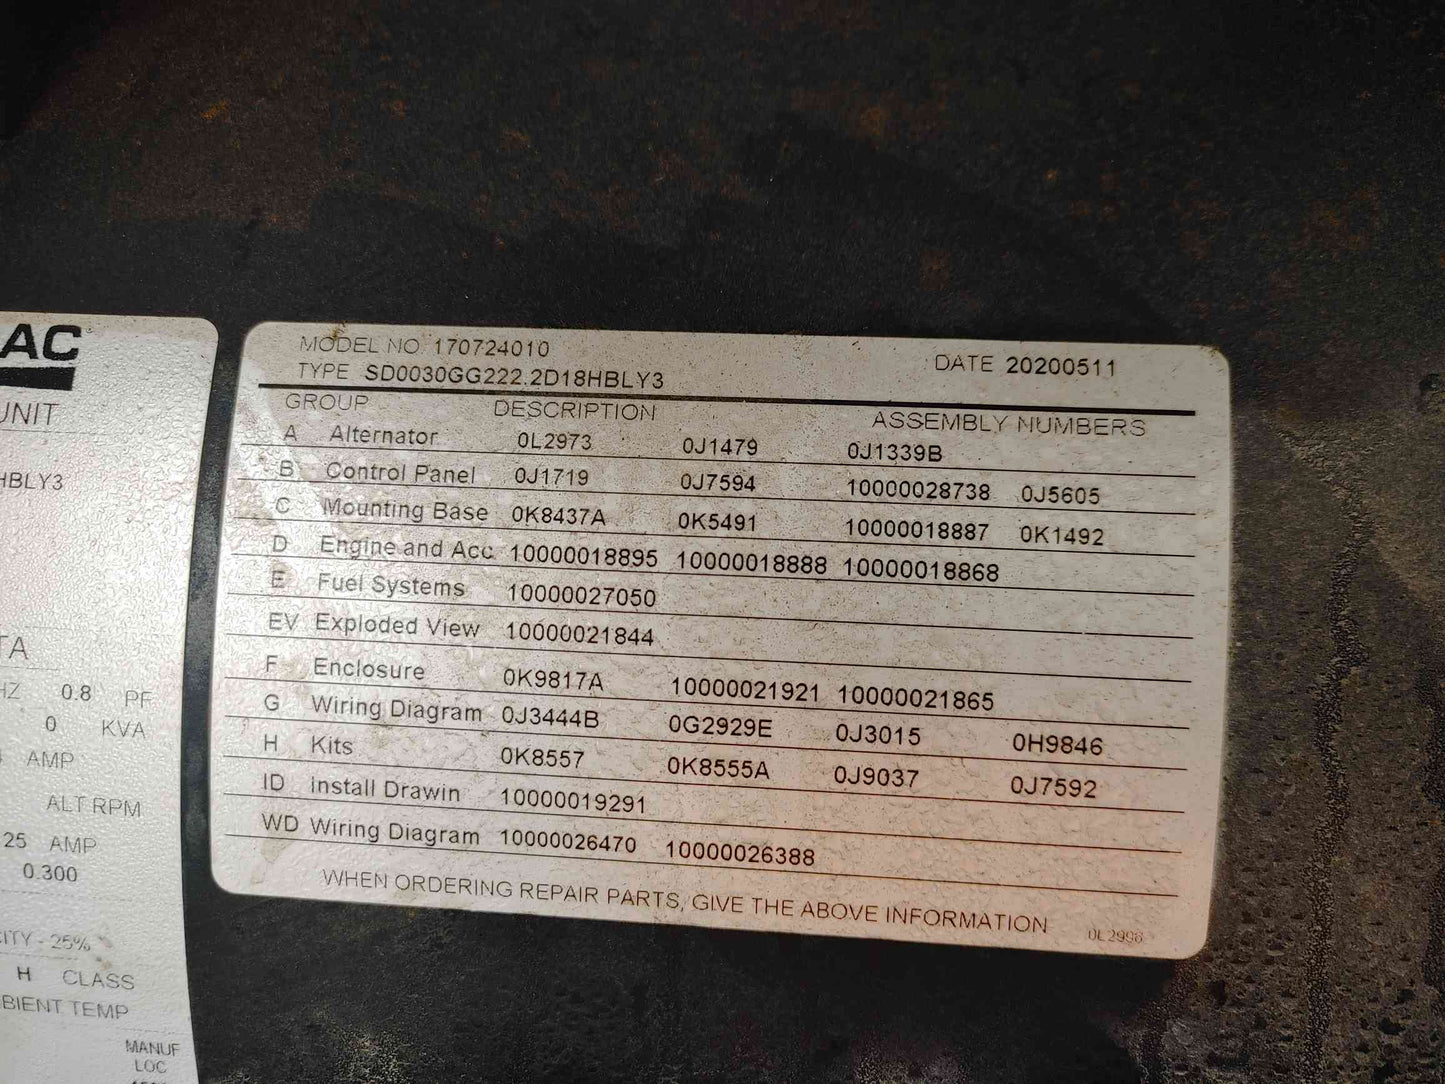 AC
UNIT
HBLY3
TA
HZ 0.8 PF
0 KVA
AMP
ALT RPM
25 AMP
0.300
CITY - 25%
H CLASS
BIENT TEMP
MANUF
LOC
MODEL NO 170724010 DATE 20200511
TYPE SD0030GG222.2D18HBLY3
GROUP DESCRIPTION ASSEMBLY NUMBERS
A Alternator 0L2973 0J1479 0J1339B
B Control Panel 0J1719 0J7594 10000028738 0J5605
C Mounting Base 0K8437A 0K5491 10000018887 0K1492
D Engine and Acc 10000018895 10000018888 10000018868
E Fuel Systems 10000027050
EV Exploded View 10000021844
F Enclosure 0K9817A 10000021921 10000021865
G Wiring Diagram 0J3444B 0G2929E 0J3015 0H9846
H Kits 0K8557 0K8555A 0J9037 0J7592
ID Install Drawin 10000019291
WD Wiring Diagram 10000026470 10000026388
WHEN ORDERING REPAIR PARTS, GIVE THE ABOVE INFORMATION